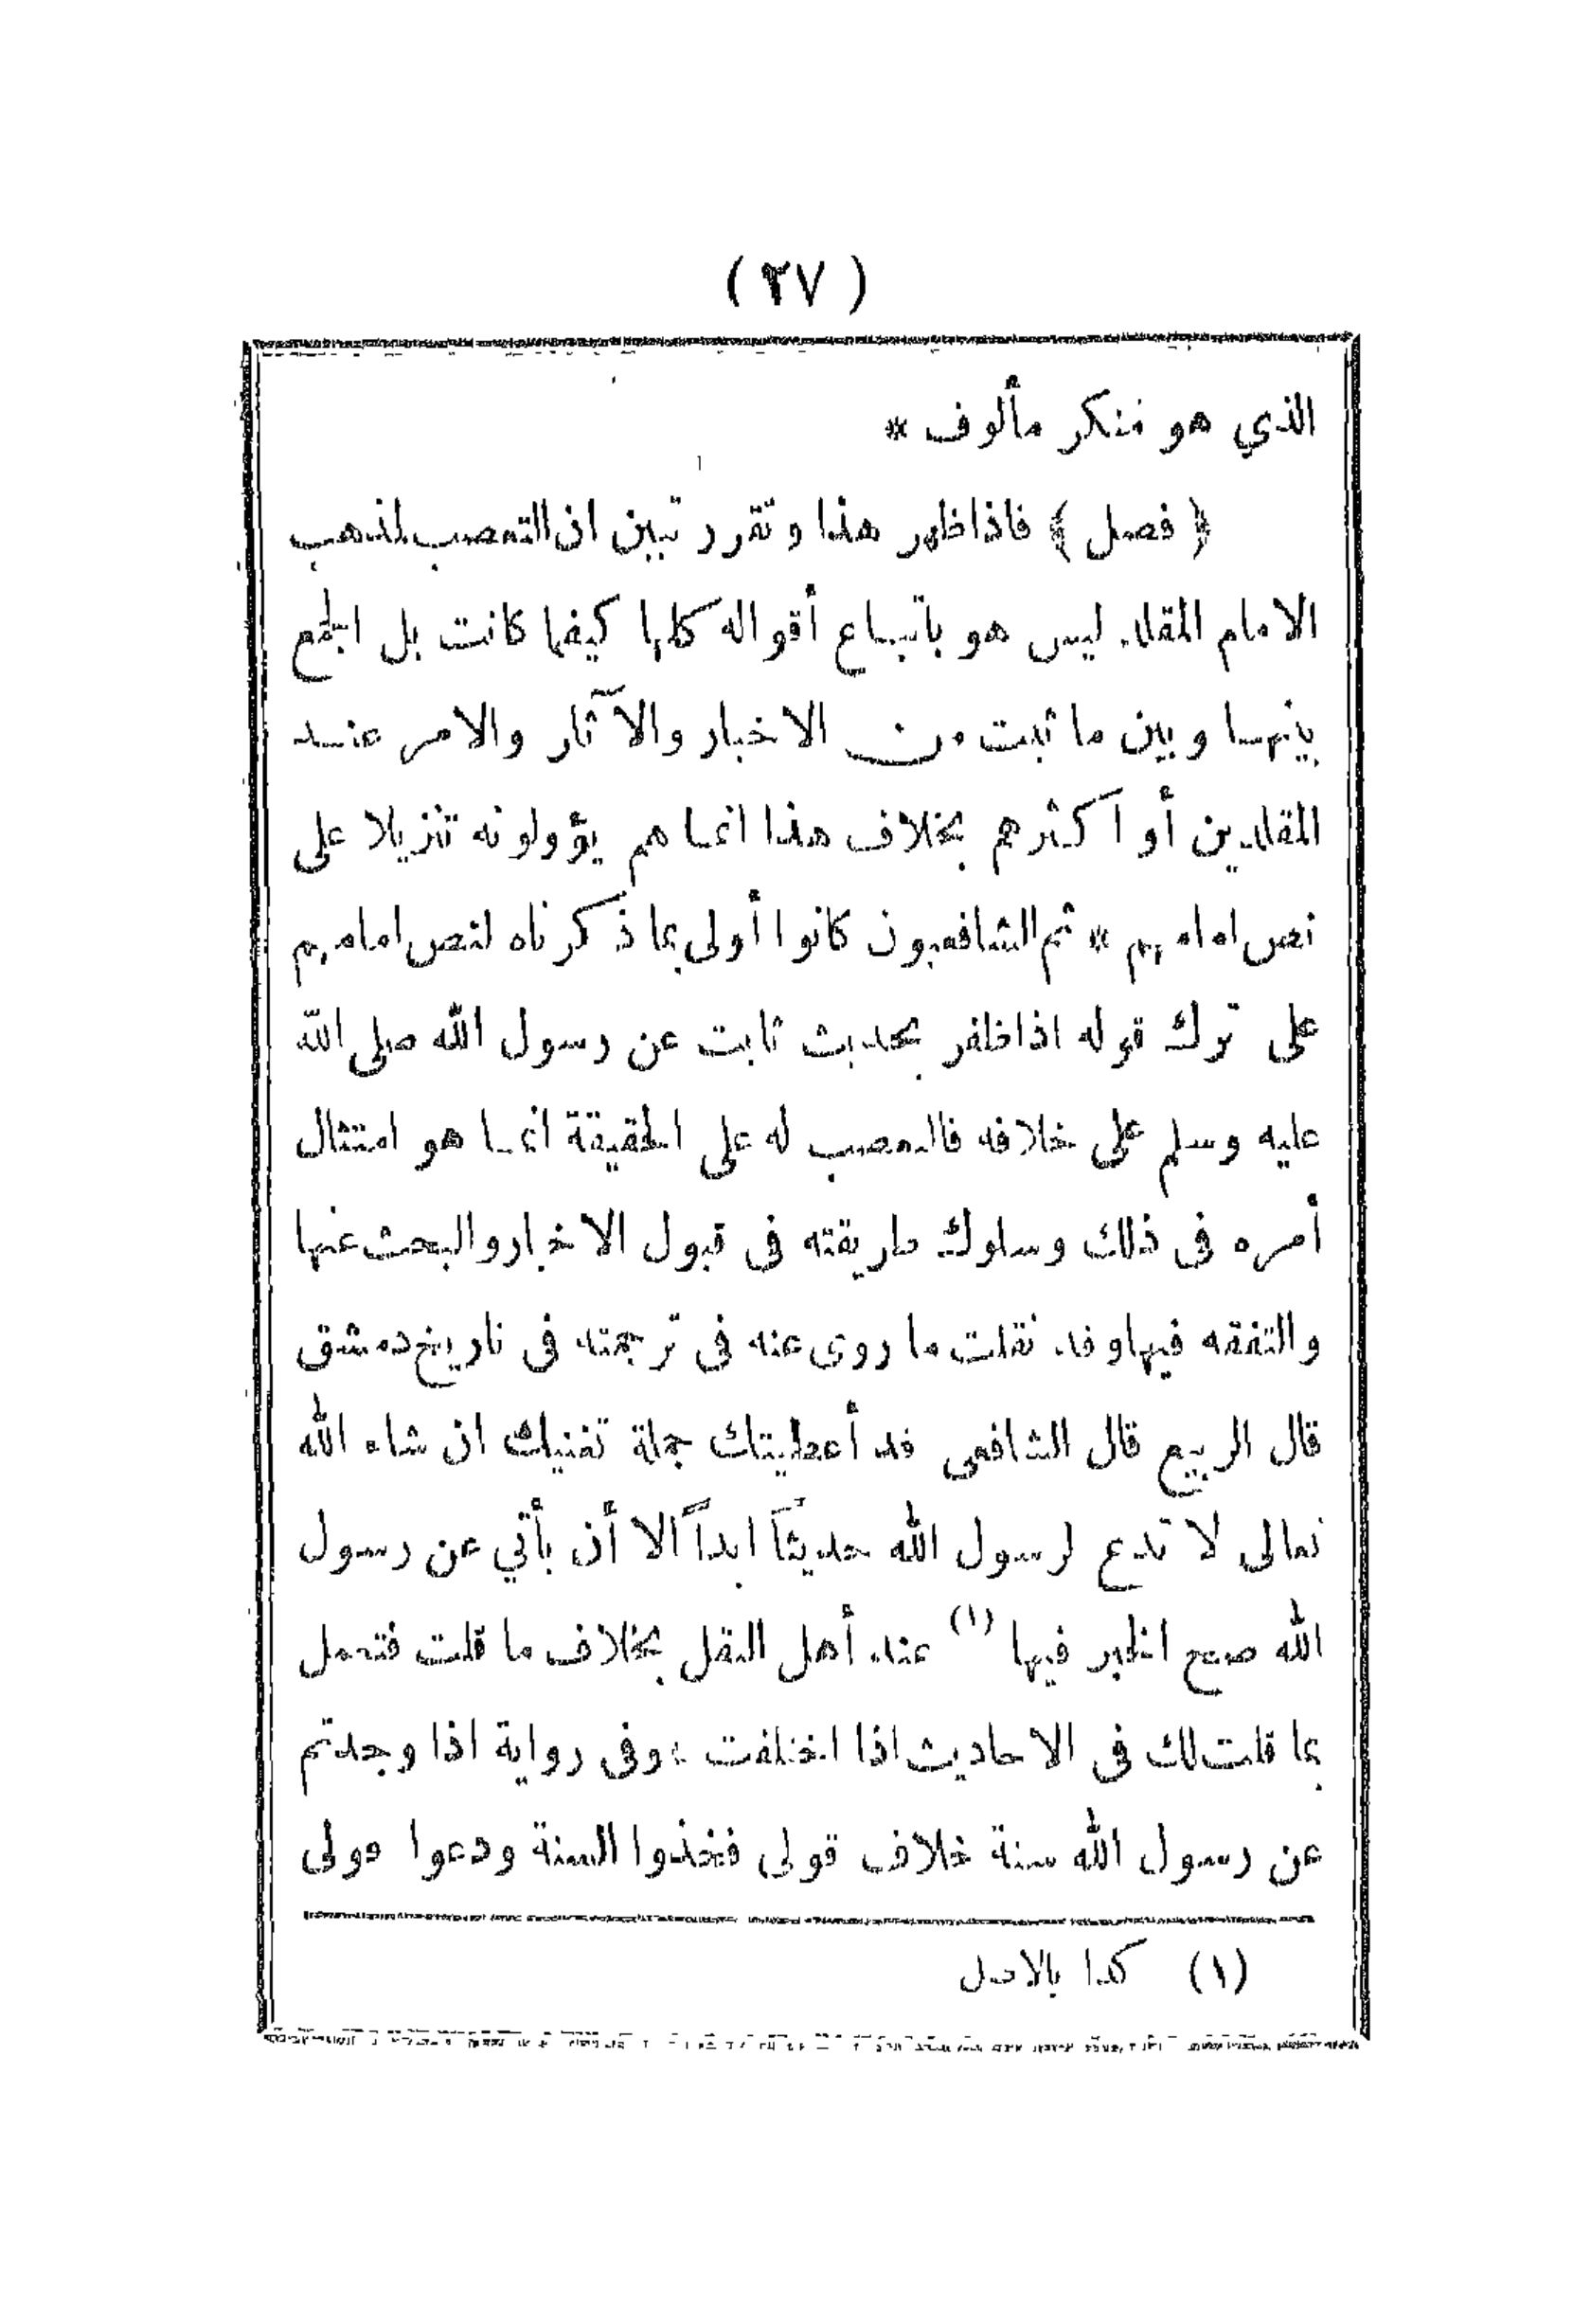 ( ٢٧ )
الذي هو منكر مألوف *
﴿ فصل ﴾ فاذا ظهر هذا وتقرر تبين ان التعصب لمذهب
الامام المقلد ليس هو باتباع أقواله كلها كيفما كانت بل الجمع
بينهما وبين ما ثبت من الاخبار والآثار والامر عند
المقلدين أو اكثرهم بخلاف هذا انما هم يؤولونه تنزيلا على
نص امامهم * ثم الشافعيون كانوا أولى بما ذكرناه لنص امامهم
على ترك قوله اذا ظفر بحديث ثابت عن رسول الله صلى الله
عليه وسلم على خلافه فالتعصب له على الحقيقة انما هو امتثال
أمره فى ذلك وسلوك طريقته فى قبول الاخبار والبحث عنها
والتفقه فيها وقد نقلت ما روى عنه فى ترجمته فى تاريخ دمشق
قال الربيع قال الشافعى قد أعطيتك جملة تغنيك ان شاء الله
تعالى لا تدع لرسول الله حديثاً ابداً الا أن يأتي عن رسول
الله صحح الخبر فيها (١) عند أهل النقل بخلاف ما قلت فتعمل
بما قلت لك فى الاحاديث اذا اختلفت : وفى رواية اذا وجدتم
عن رسول الله سنة خلاف قولى فخذوا السنة ودعوا قولى
(١) كذا بالاصل